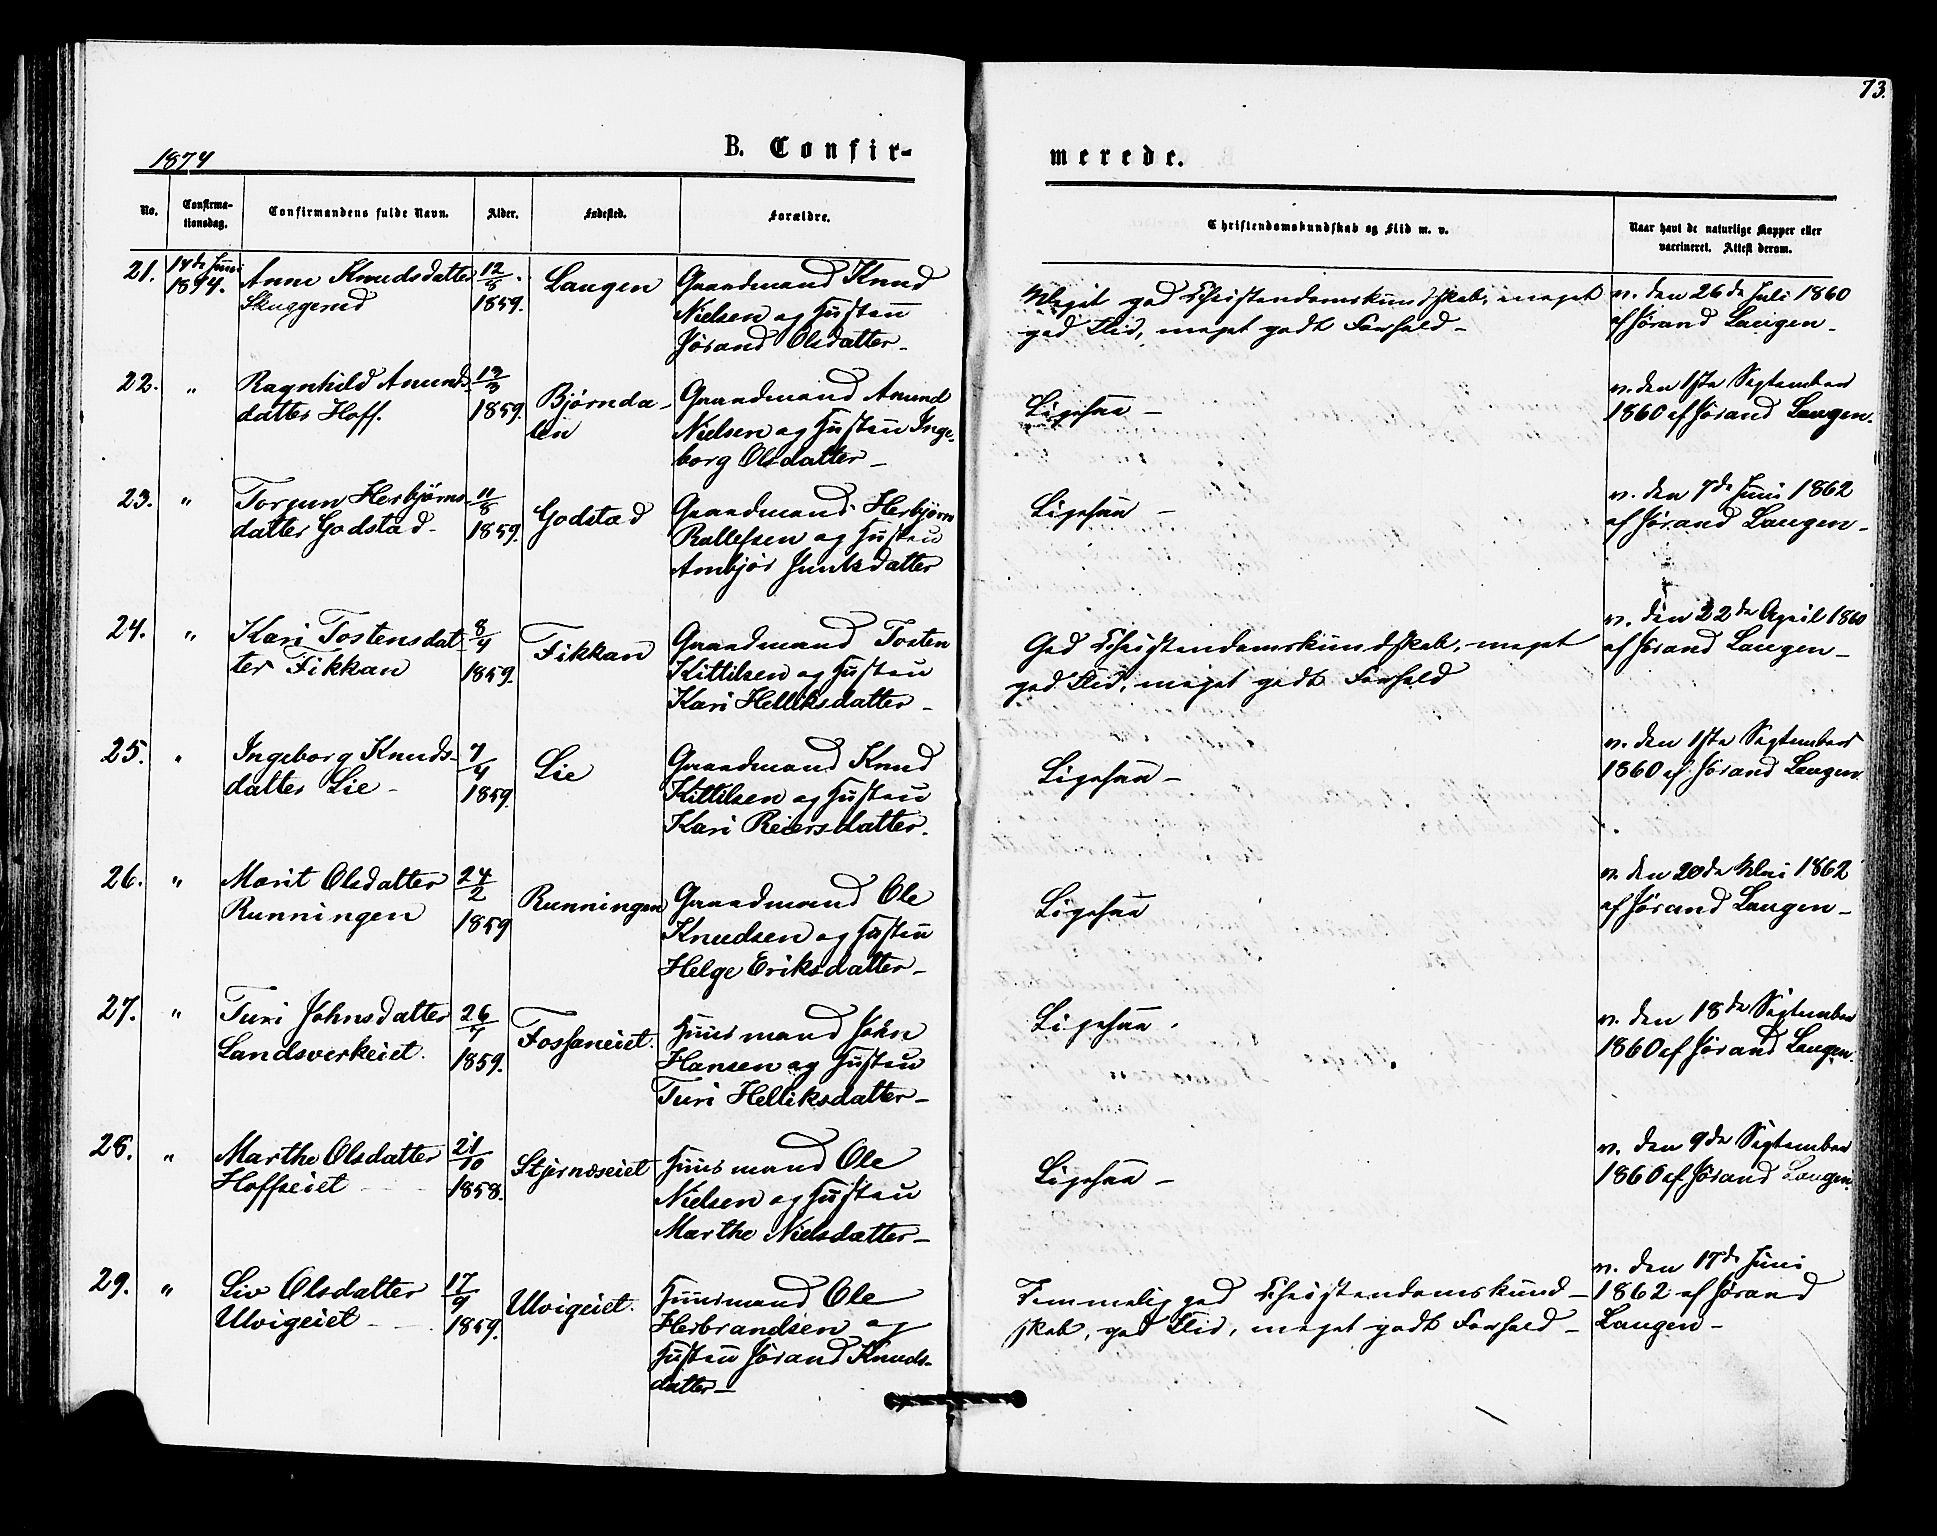 73.
1874
B. Confir-
merede.
No.
Confirma-
tionsdag.
Confirmandens fulde Navn.
Alder.
Fødested.
Forældre.
Christendomskundskab og Flid m. v.
Naar havt de naturlige Kopper eller
vaccineret. Attest derom.
21.
14de Juni
1874.
Anne Knudsdatter
Skuggerud
12/5
1859.
Laugen
Gaardmand Knud
Nielsen og Hustru
Jørand Olsdatter_
Meget god Christendomskundskab, meget
god Flid, meget godt Forhold_
v. den 26de Juli 1860
af Jørand Laugen_
22.
"
Ragnhild Amunds-
datter Hoff.
1859.
Bjørnda-
len
Gaardmand Amund
Nielsen og Hustru Inge-
borg Olsdatter_
Ligesaa_
v. den 1ste September
1860 af Jørand Laugen.
23.
"
Torgun Herbjørns-
datter Godstad.
11/8
1859.
Godstad
Gaardmand Herbjørn
Rollefsen og Hustru
Ambjør
Ligesaa_
v. den 7de Juni 1862
af Jørand Laugen_
24.
"
Kari Tostensdat-
ter Fikkan
8/4
1859.
Fikkan
Gaardmand Tosten
Kittilsen og Hustru
Kari Helliksdatter_
God Christendomskundskab, meget
god Flid, meget godt Forhold
v. den 22de April 1860
af Jørand Laugen_
25.
"
Ingeborg Knuds-
datter Lie_
7/4
1859.
Lie
Gaardmand Knud
Kittilsen og Hustru
Kari Reiersdatter.
Ligesaa_
v. den 1ste September
1860 af Jørand Laugen.
26.
"
Marit Olsdatter
Runningen
24/2
1859
Runningen
Gaardmand Ole
Knudsen og Hustru
Helge Eriksdatter_
Ligesaa
v. den 20de Mai 1862
af Jørand Laugen_
27.
"
Turi Johnsdatter
Landsverkeiet.
1859.
Fossaneiet.
Huusmand John
Hansen og Hustru
Turi Helliksdatter_
Ligesaa.
v. den 18de September
1860 af Jørand Laugen.
28.
"
Marthe Olsdatter
Hoffseiet
21/10
1858.
Stjernæseiet
Huusmand Ole
Nielsen og Hustru
Marthe Nielsdatter_
Ligesaa_
v. den 9de September
1860 af Jørand Laugen.
29.
"
Liv Olsdatter
Ulvigeiet
17/9
1859.
Ulvigeiet.
Huusmand Ole
Herbrandsen og
Hustru Jørand Knuds-
datter_
Temmelig god Christendomskund-
skab, god Flid, meget godt Forhold_
v. den 17de Juni
1862 af Jørand
Laugen_